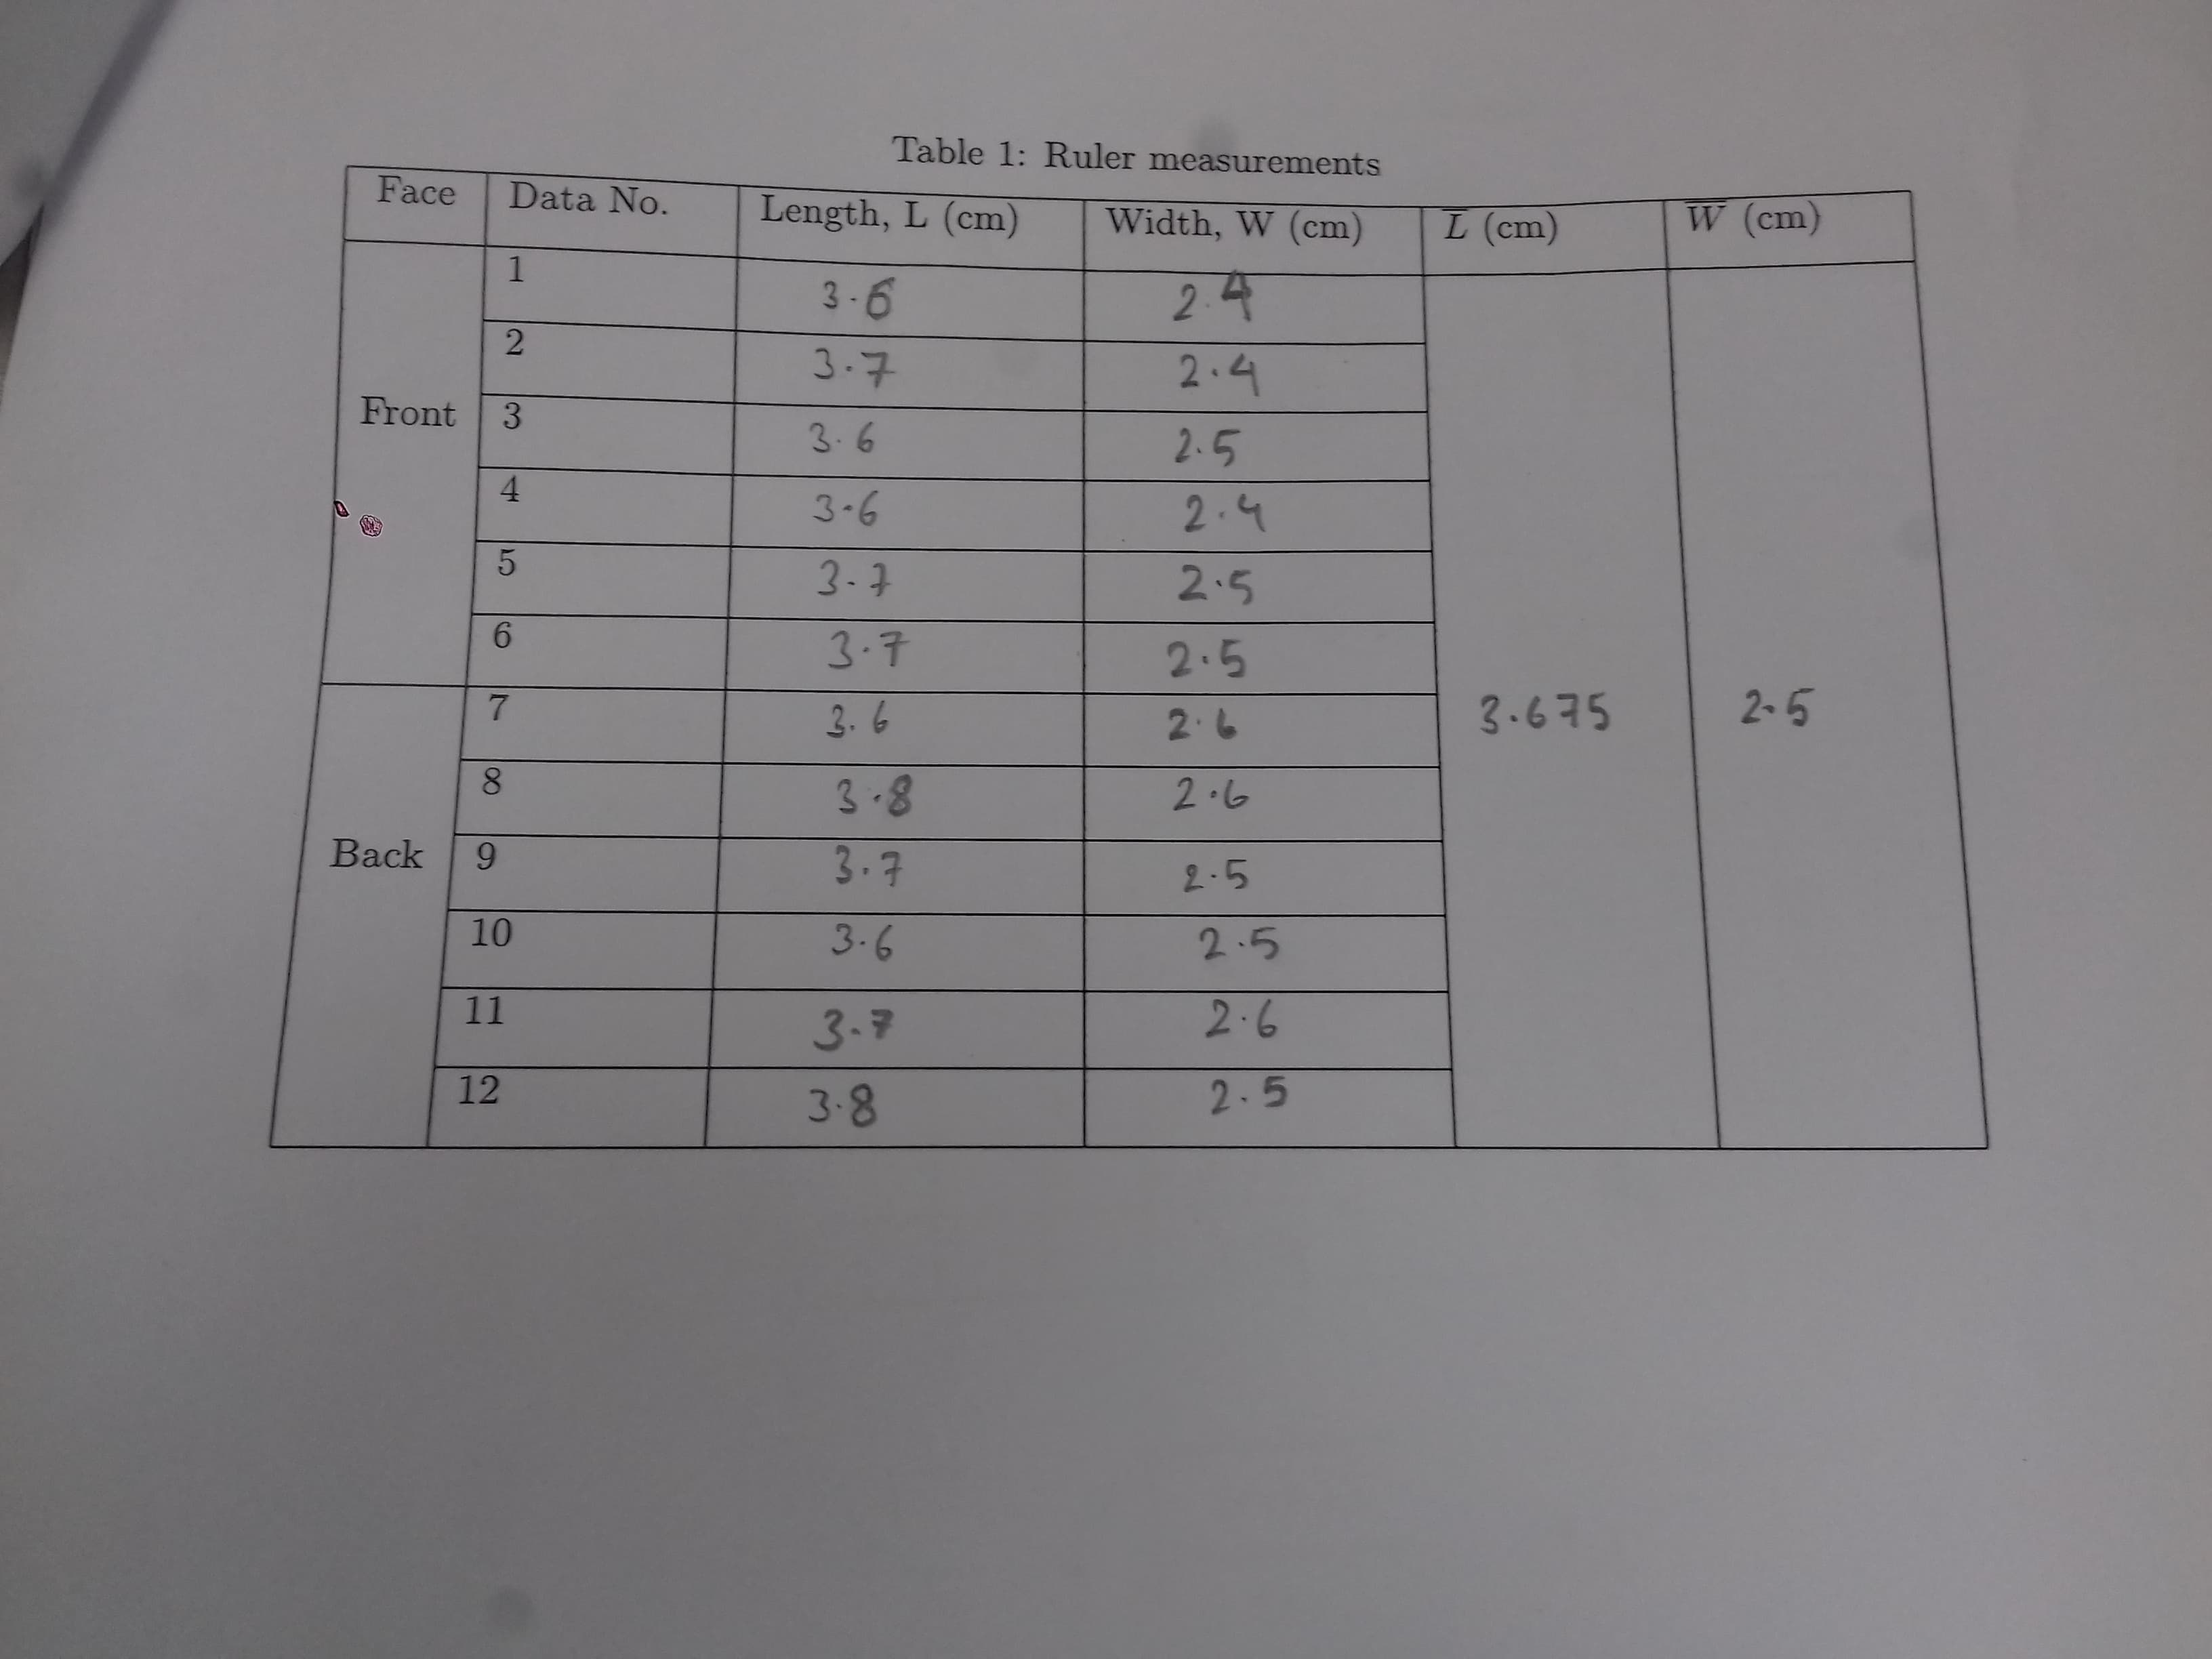 Table 1: Ruler measurements
Face Data No. Length, L (cm) Width, W (cm) L̅ (cm) W̅ (cm)
Front
1 3.6 2.4
2 3.7 2.4
3 3.6 2.5
4 3.6 2.4
5 3.7 2.5
6 3.7 2.5
Back
7 3.6 2.6 3.675 2.5
8 3.8 2.6
9 3.7 2.5
10 3.6 2.5
11 3.7 2.6
12 3.8 2.5